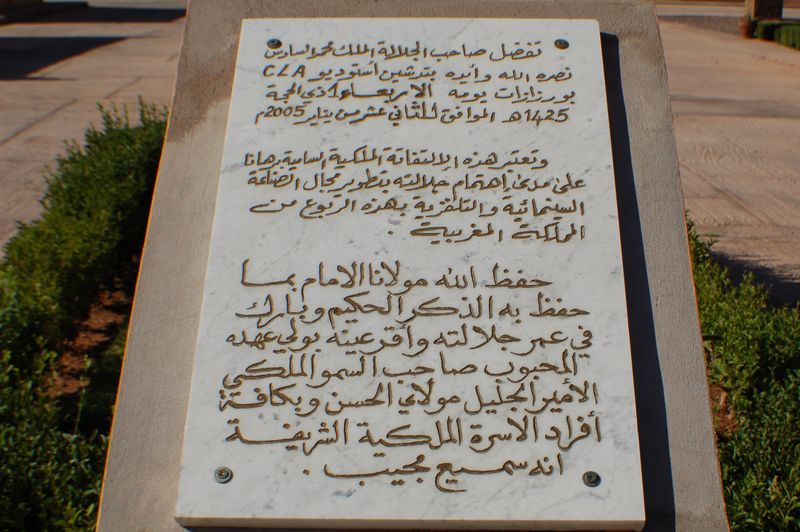 تفضل صاحب الجلالة الملك محمد السادس
نصره الله وأيده بتدشين أستوديو CLA
بورزازات يومه الاربعاء 1 ذي الحجة
1425هـ الموافق للثاني عشر من يناير 2005م
وتعتبر هذه الإلتفاتة الملكية السامية رهانا
على مدى إهتمام جلالته بتطوير مجال الصناعة
السينمائية والتلفزية بهذه الربوع من
المملكة المغربية .
حفظ الله مولانا الامام بما
حفظ به الذكر الحكيم وبارك
في عمر جلالته وأقر عينه بولي عهده
المحبوب صاحب السمو الملكي
الأمير الجليل مولاي الحسن وبكافة
أفراد الاسرة الملكية الشريفة
انه سميع مجيب .